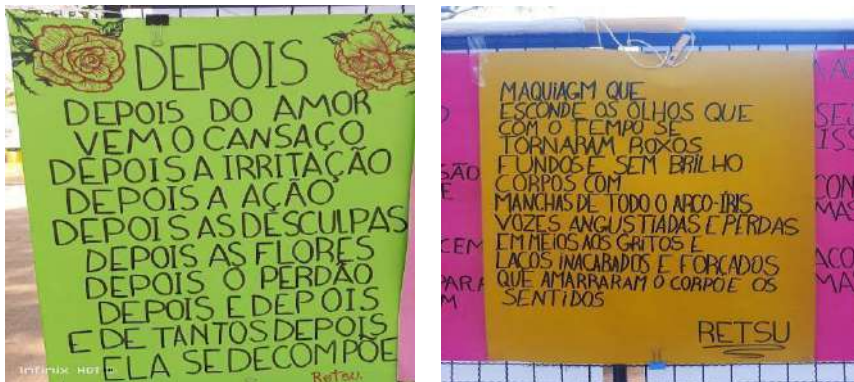 DEPOIS
DEPOIS DO AMOR
VEM O CANSAÇO
DEPOIS A IRRITAÇÃO
DEPOIS A AÇÃO
DEPOIS AS DESCULPAS
DEPOIS AS FLORES
DEPOIS O PERDÃO
DEPOIS E DEPOIS
E DE TANTOS DEPOIS
ELA SE DECOMPÕE
Retsu.
Infinix HOT
MAQUIAGM QUE
ESCONDE OS OLHOS QUE
COM O TEMPO SE
TORNARAM ROXOS
FUNDOS E SEM BRILHO
CORPOS COM
MANCHAS DE TODO O ARCO-ÍRIS
VOZES ANGUSTIADAS E PERDAS
EM MEIOS AOS GRITOS E
LAÇOS INACABADOS E FORÇADOS
QUE AMARRARAM O CORPO E OS
SENTIDOS
RETSU